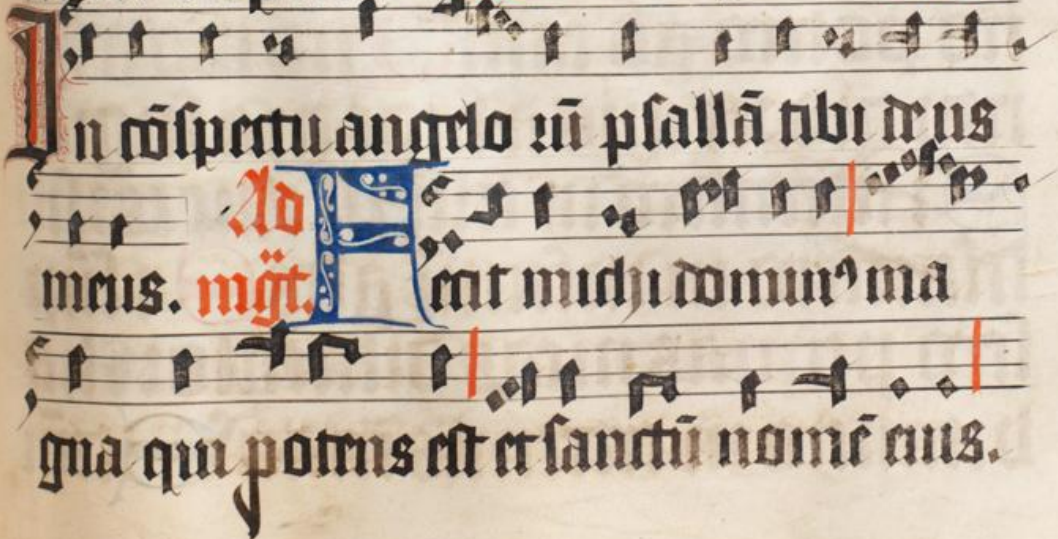 In cōſpectu angelo ꝝ̄ pſallā tibi deus
meus. Ad mḡt. Fecit michi dominꝰ ma
gna qui potens eſt et ſanctū nomē eius.